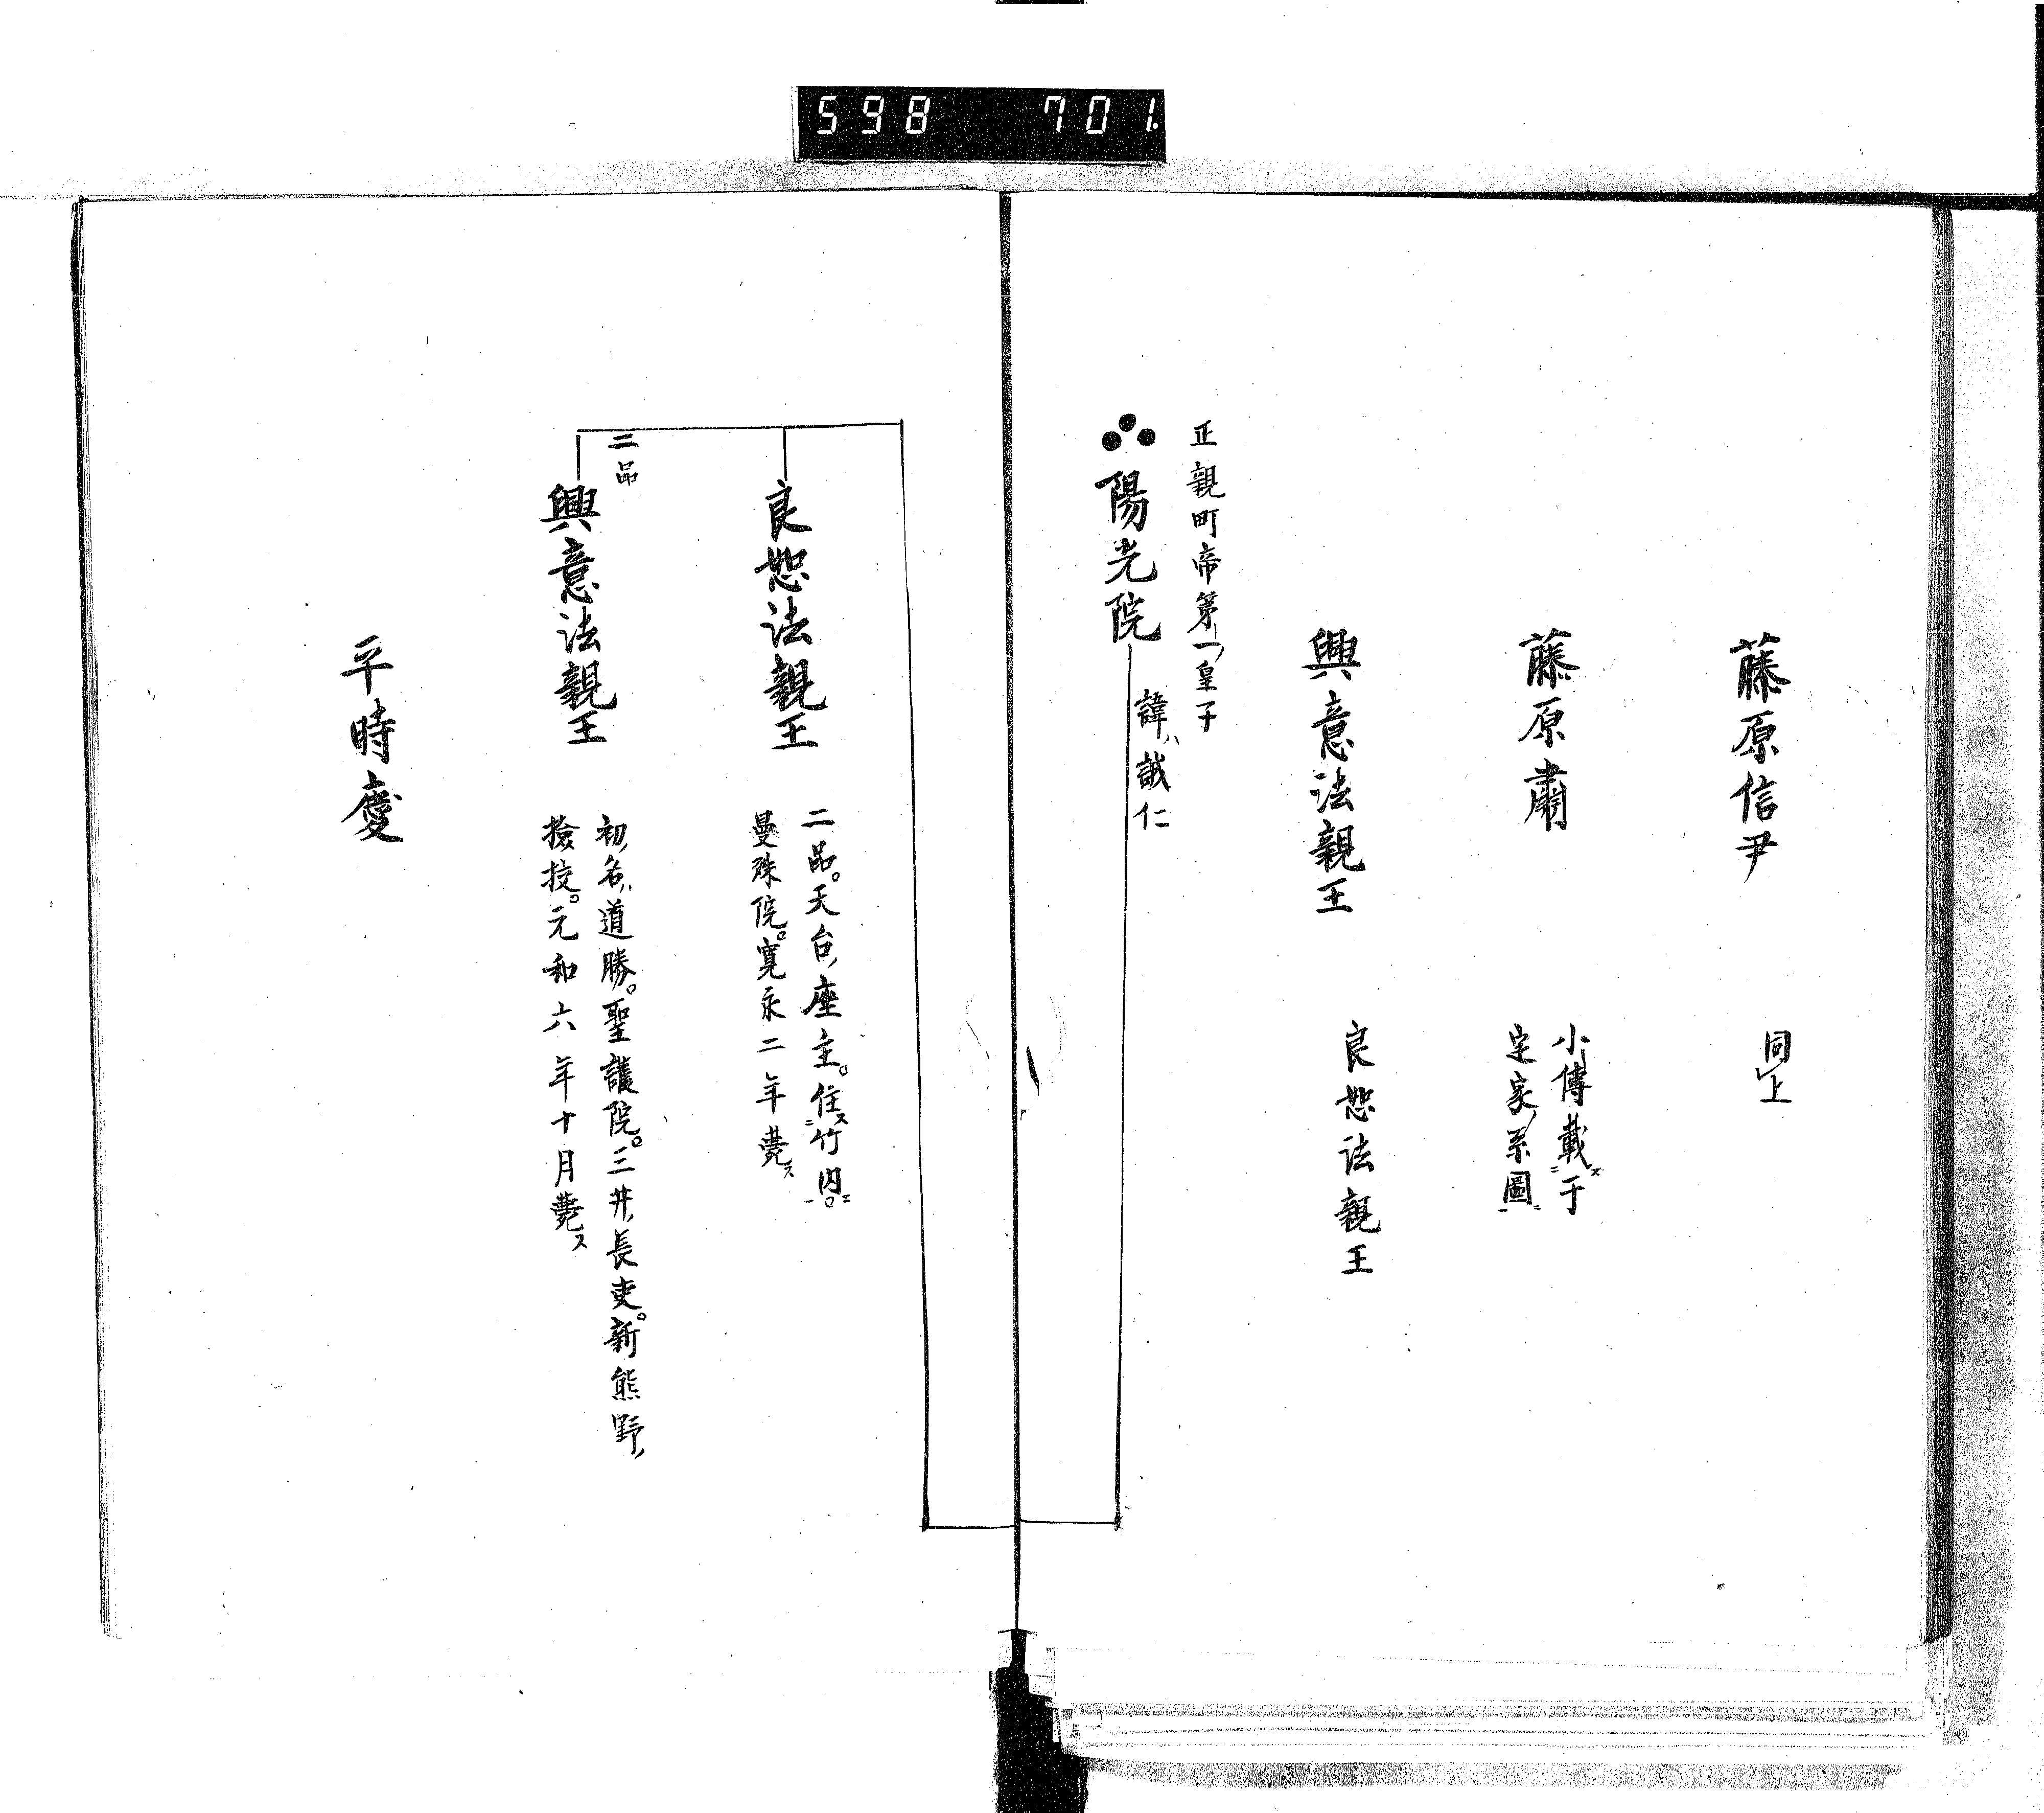 598 701
藤原信尹
同上
藤原肅
小傳載ス于
定家系圖ニ
興意法親王
良恕法親王
正親町帝第一皇子
陽光院
諱ハ誠仁
良恕法親王
二品。天台座主。住ス竹内ニ
曼殊院。寛永二年薨ス
二品
興意法親王
初名ハ道勝。聖護院。三井長吏。新熊野
撿挍。元和六年十月薨ス
平時慶